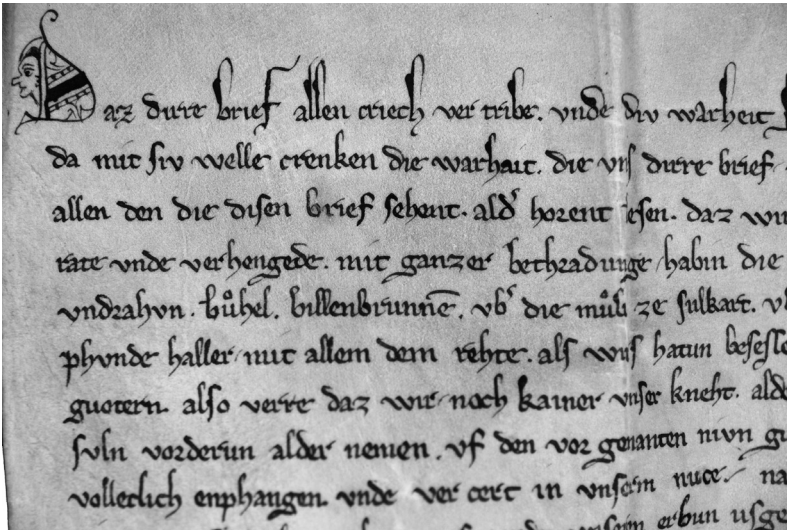 Daz dirre brief allen criech ver tribe. vnde div warheit
da mit siv welle crenken die warhait. die vns dirre brief
allen den die disen brief sehent. ald' horent lesen. daz wir
rate vnde verhengede. mit ganzer bethradunge habin die
vndrahvn. bůhel. billenbrunnē. vb' die můli ze sulkart.
phvnde haller mit allem dem rehte. als wirs hatun besesse
guotern. also verre daz wir noch kainer vnser kneht. alde
suln vorderun alder nemen. vf den vor genanten nivn gu
volleclich enphangen. vnde ver cert in vnserm nuce. na
erbun usge